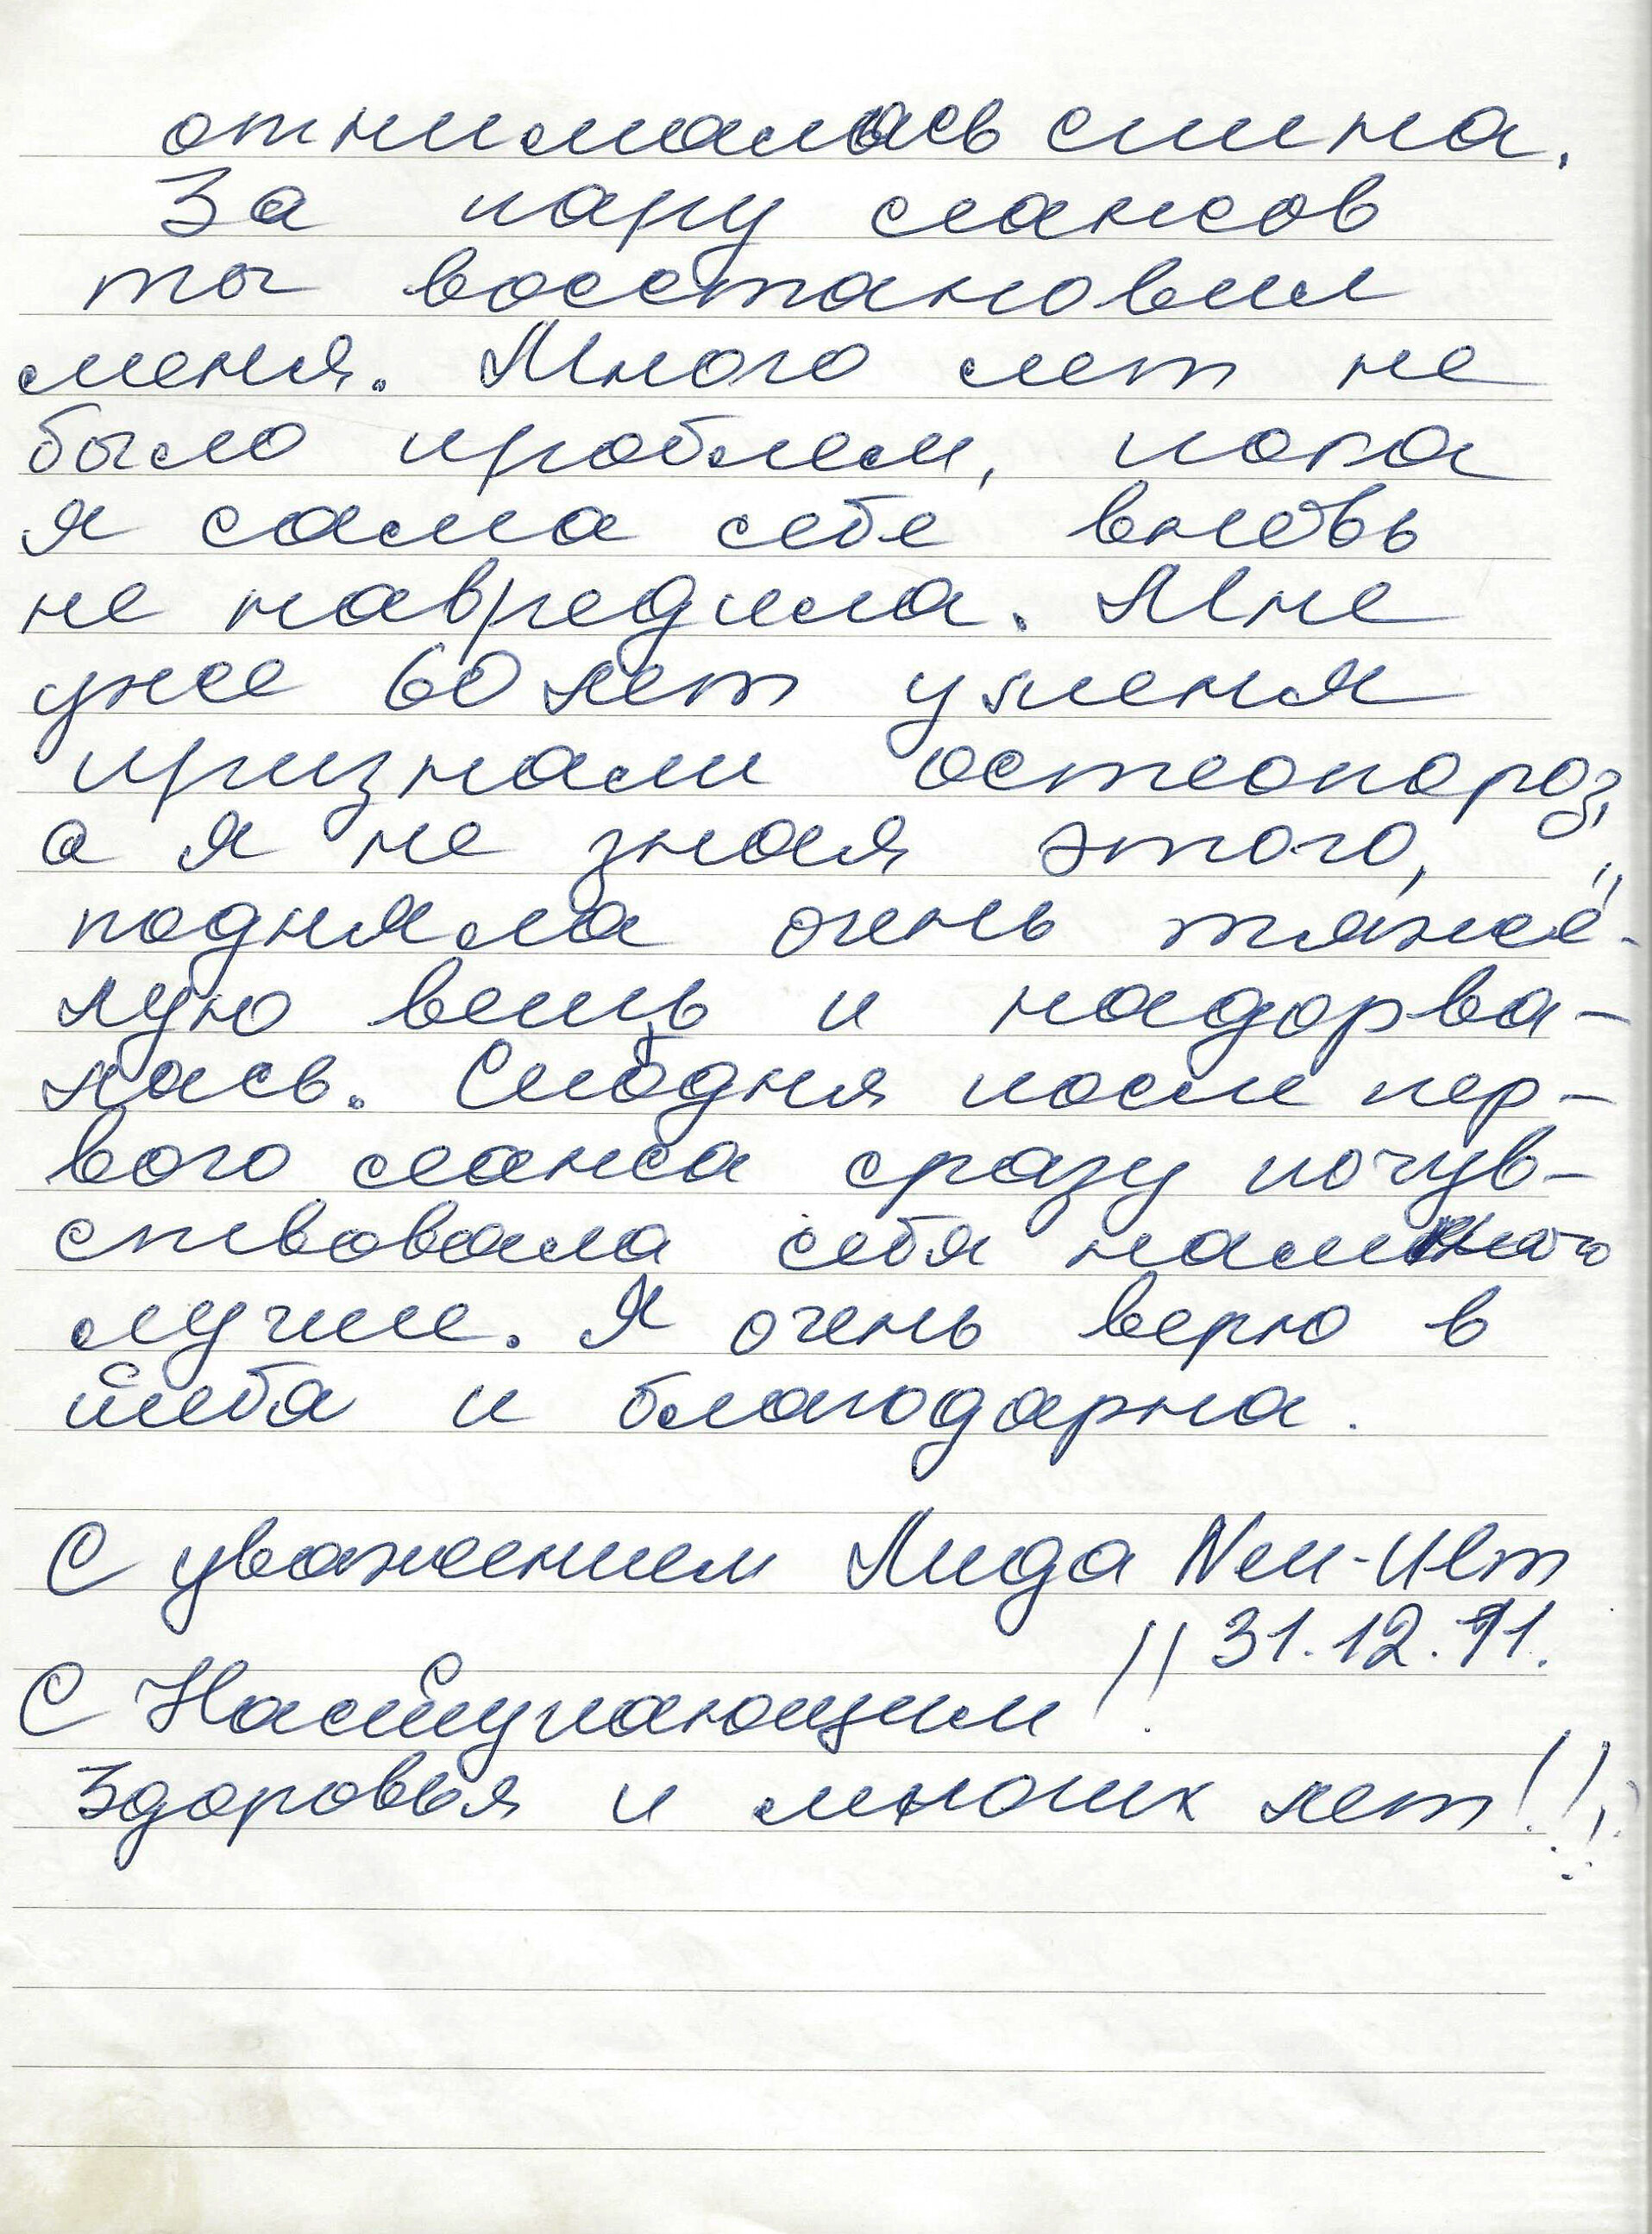 отнималась спина.
За пару сеансов
ты восстановил
меня. Много лет не
было проблем, пока
я сама себе вновь
не навредила. Мне
уже 60 лет у меня
признали остеопороз,
а я не зная этого,
подняла очень тяжё-
лую вещь и надорва-
лась. Сегодня после пер-
вого сеанса сразу почув-
ствовала себя намного
лучше. Я очень верю в
тебя и благодарна.
С уважением Лида Neu-Ulm
31.12.11.
С Наступающим!!
Здоровья и многих лет!!!